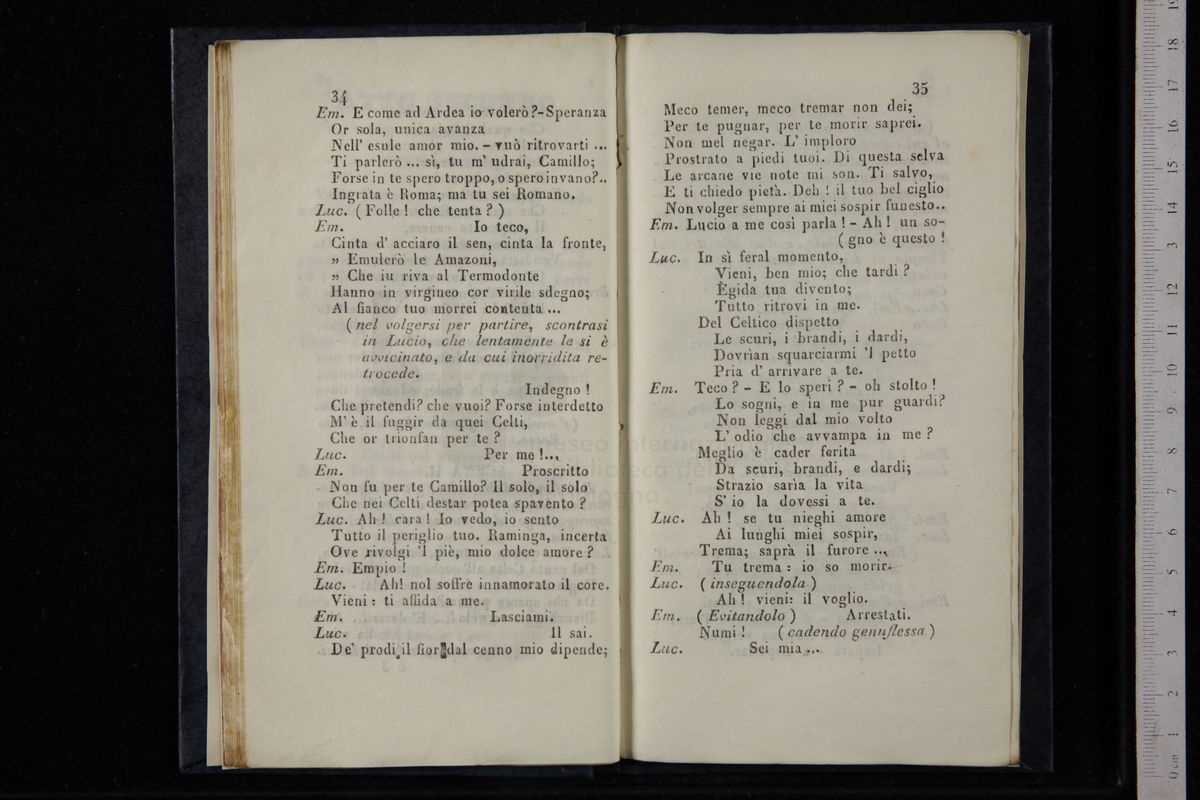 34
Em. E come ad Ardea io volerò?-Speranza
Or sola, unica avanza
Nell' esule amor mio. - vuò ritrovarti ...
Ti parlerò ... sì, tu m' udrai, Camillo;
Forse in te spero troppo, o spero invano?..
Ingrata è Roma; ma tu sei Romano.
Luc. ( Folle ! che tenta ? )
Em. Io teco,
Cinta d' acciaro il sen, cinta la fronte,
» Emulerò le Amazoni,
» Che iu riva al Termodonte
Hanno in virgineo cor virile sdegno;
Al fianco tuo morrei contenta ...
( nel volgersi per partire, scontrasi
in Lucio, che lentamente le si è
avvicinato, e da cui inorridita re-
trocede.
Indegno !
Che pretendi? che vuoi? Forse interdetto
M' è il fuggir da quei Celti,
Che or trionfan per te ?
Luc. Per me !...
Em. Proscritto
Non fu per te Camillo? Il solo, il solo
Che nei Celti destar potea spavento ?
Luc. Ah ! cara ! Io vedo, io sento
Tutto il periglio tuo. Raminga, incerta
Ove rivolgi 'l piè, mio dolce amore ?
Em. Empio !
Luc. Ah! nol soffre innamorato il core.
Vieni : ti affida a me.
Em. Lasciami.
Luc. Il sai.
De' prodi il fior dal cenno mio dipende;
35
Meco temer, meco tremar non dei;
Per te pugnar, per te morir saprei.
Non mel negar. L' imploro
Prostrato a piedi tuoi. Di questa selva
Le arcane vie note mi son. Ti salvo,
E ti chiedo pietà. Deh ! il tuo bel ciglio
Non volger sempre ai miei sospir funesto..
Em. Lucio a me così parla ! - Ah ! un so-
( gno è questo !
Luc. In sì feral momento,
Vieni, ben mio; che tardi ?
Egida tua divento;
Tutto ritrovi in me.
Del Celtico dispetto
Le scuri, i brandi, i dardi,
Dovrìan squarciarmi 'l petto
Pria d' arrivare a te.
Em. Teco ? - E lo speri ? - oh stolto !
Lo sogni, e in me pur guardi?
Non leggi dal mio volto
L' odio che avvampa in me ?
Meglio è cader ferita
Da scuri, brandi, e dardi;
Strazio sarìa la vita
S' io la dovessi a te.
Luc. Ah ! se tu nieghi amore
Ai lunghi miei sospir,
Trema; saprà il furore ...
Em. Tu trema : io so morir.
Luc. ( inseguendola )
Ah ! vieni: il voglio.
Em. ( Evitandolo ) Arrestati.
Numi ! ( cadendo genuflessa )
Luc. Sei mia ...